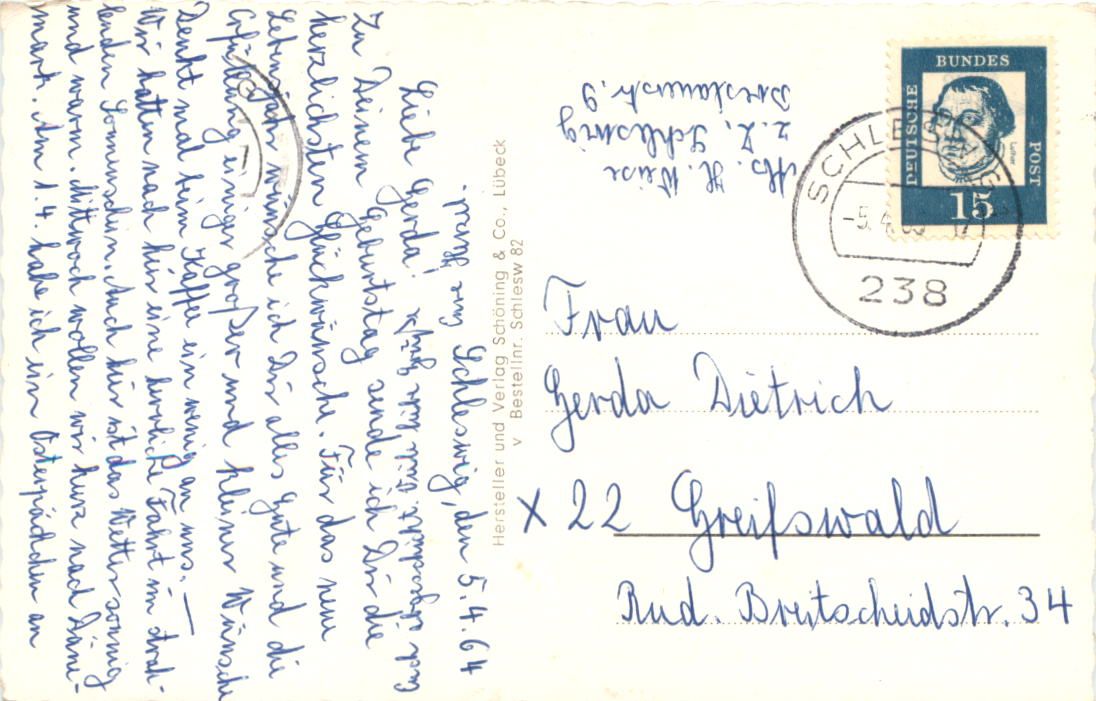 Schleswig, den 5.4.64
Liebe Gerda!
Zu Deinem Geburtstag sende ich Dir die
herzlichsten Glückwünsche. Für das neue
Lebensjahr wünsche ich Dir alles Gute und die
Erfüllung einiger großer und kleiner Wünsche
Denkt mal beim Kaffee ein wenig an uns. —
Wir hatten nach hier eine herrliche Fahrt im strah-
lenden Sonnenschein. Auch hier ist das Wetter sonnig
und warm. Mittwoch wollen wir kurz nach Däne-
mark. Am 1.4. habe ich ein Osterpäckchen an
Euch abgeschickt. Viele liebe Grüße
Eure Hirsel.
Hersteller und Verlag Schöning & Co., Lübeck
v Bestellnr. Schlesw 82
Abs. H. Weise
z.Z. Schleswig
Breslauerstr. 9
DEUTSCHE
BUNDES
POST
Luther
15
SCHLESWIG
-5.4.
238
Frau
Gerda Dietrich
X 22 Greifswald
Rud. Breitscheidstr. 34